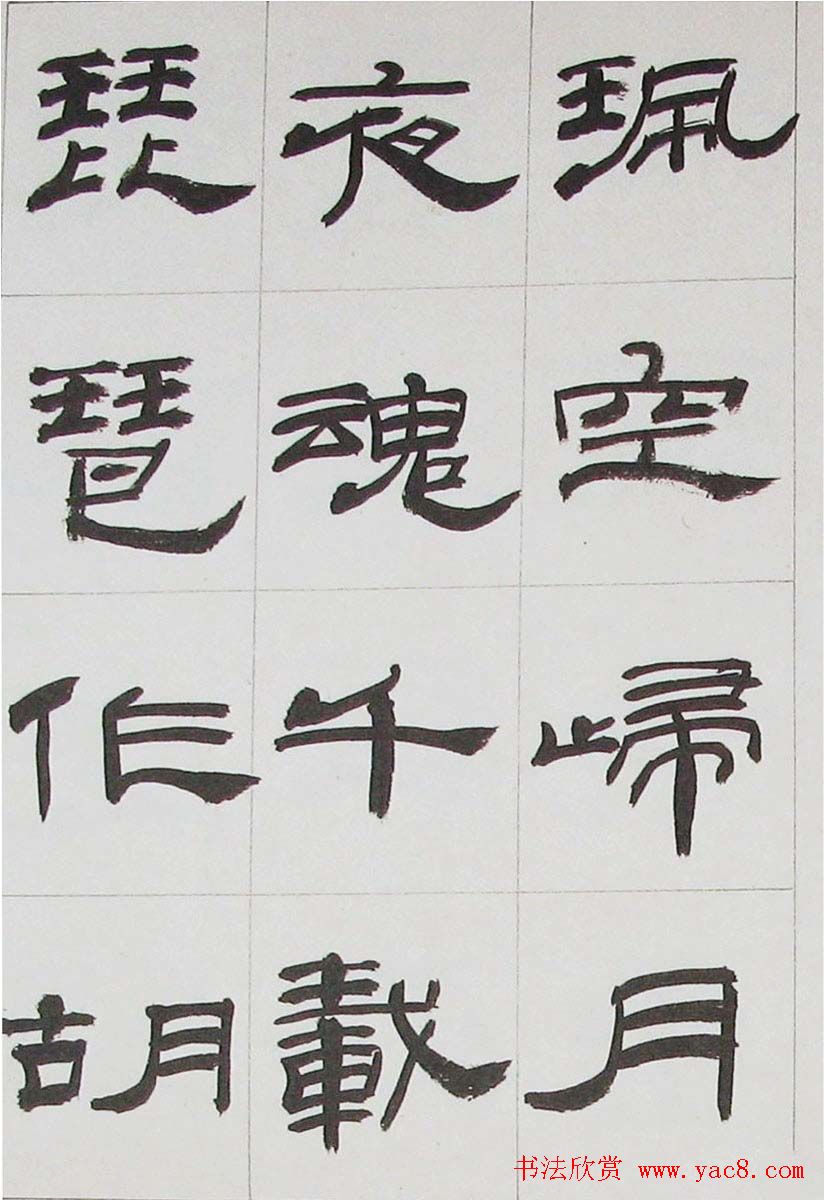 珮空歸月
夜魂千載
琵琶作胡
书法欣赏 www.yac8.com